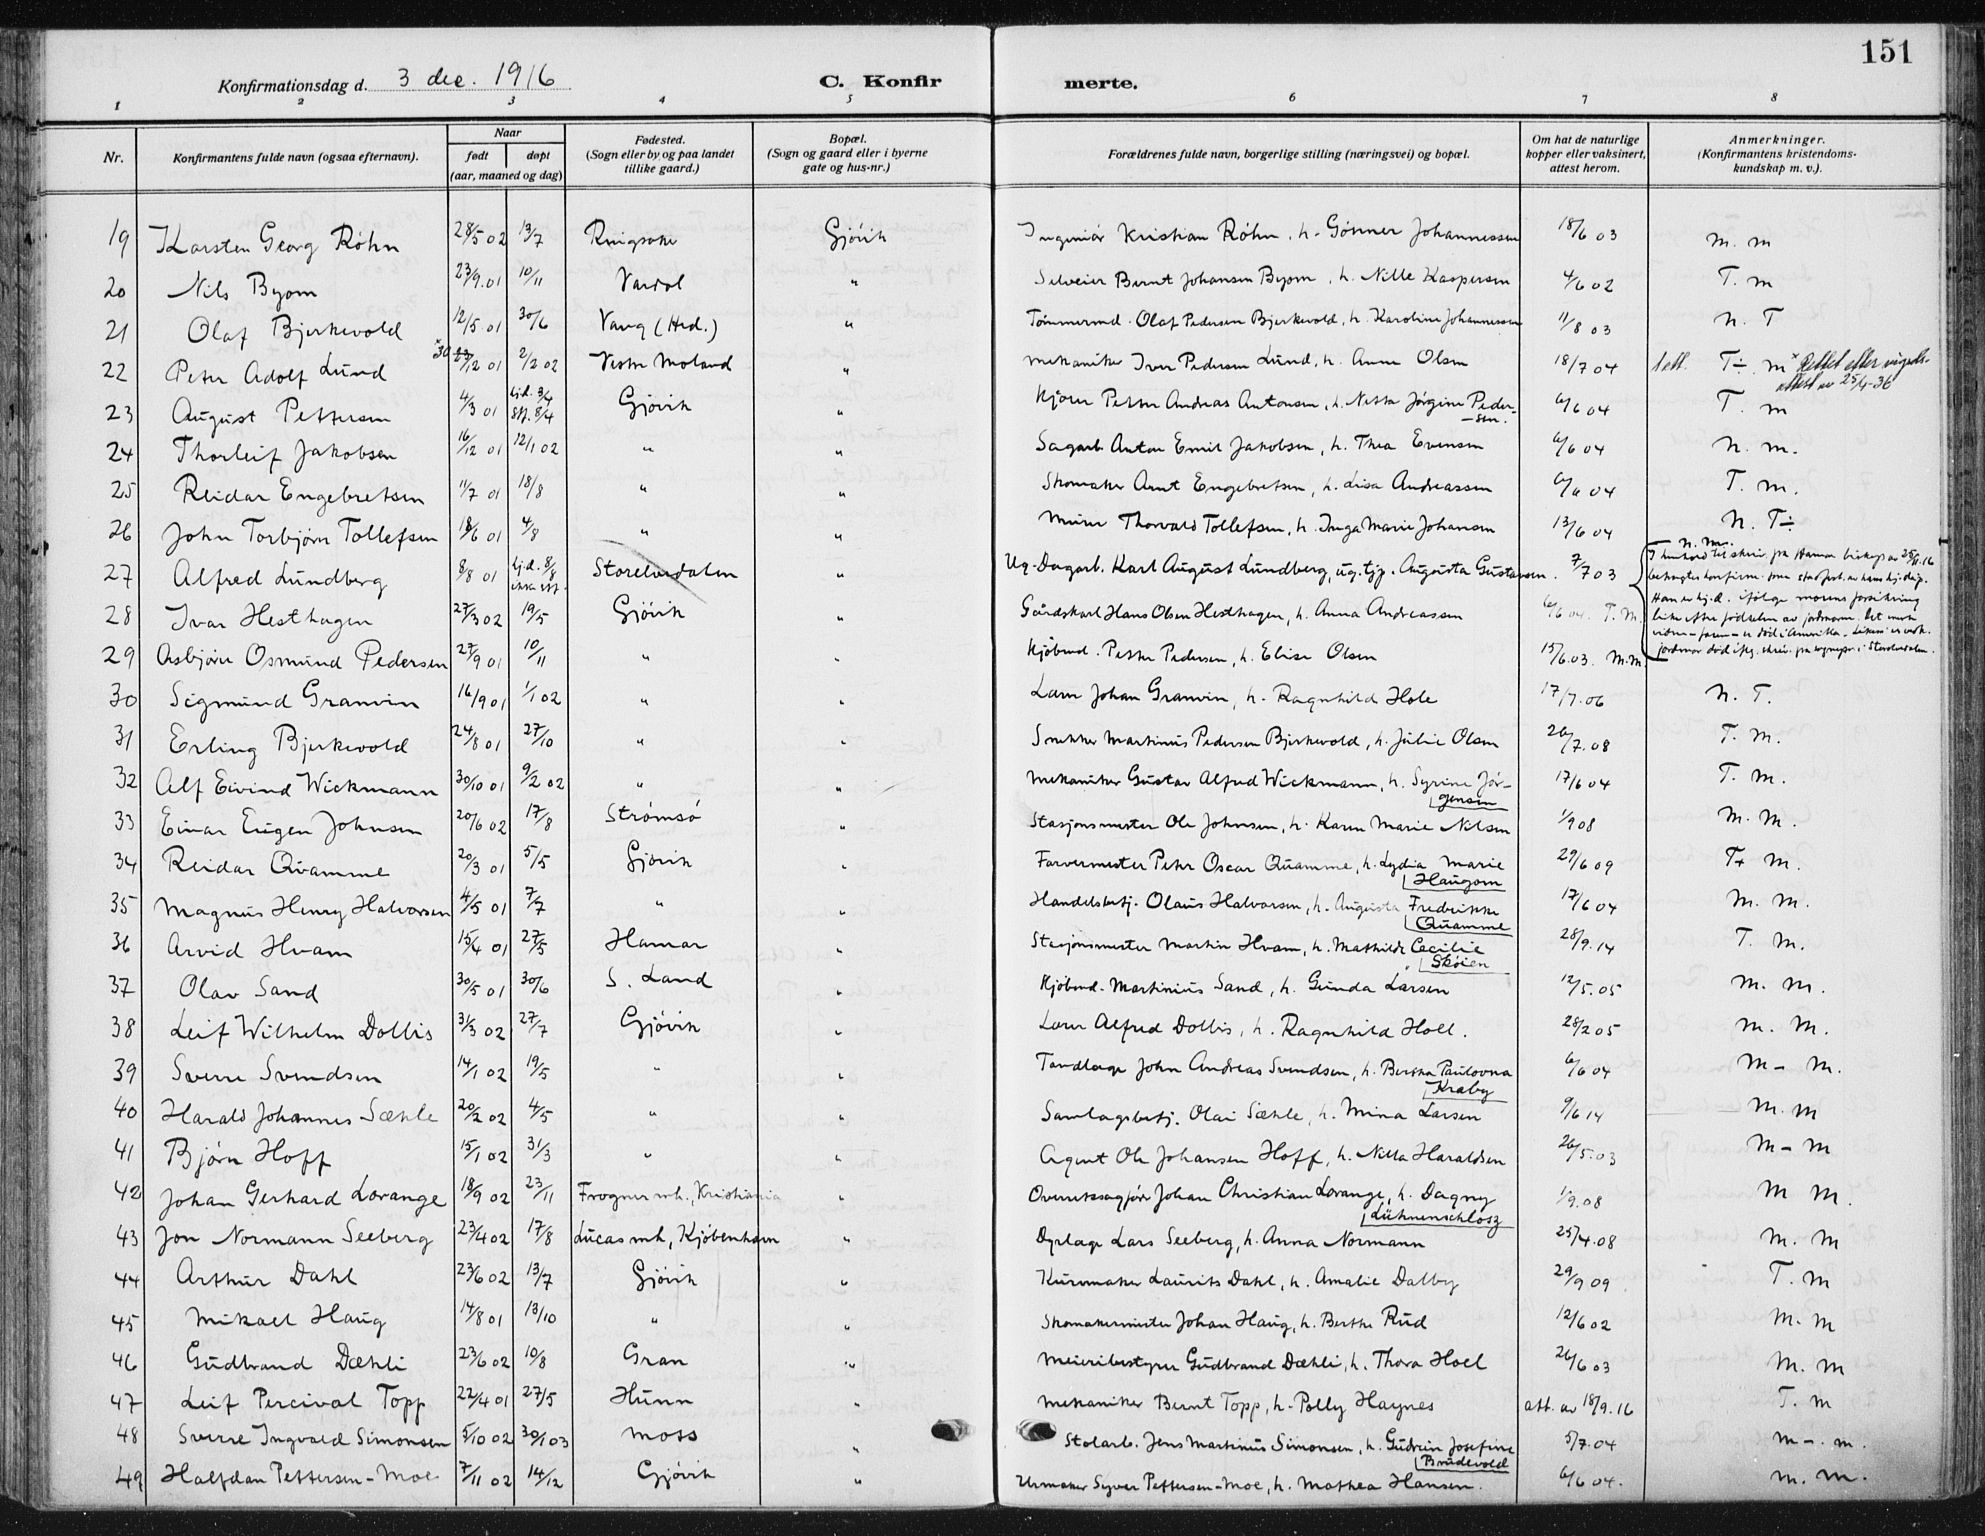 151
Konfirmationsdag d. 3 dec. 1916 C. Konfirmerte.
1 2 3 4 5 6 7 8
Nr. Konfirmantens fulde navn (ogsaa efternavn). Naar født døpt (aar, maaned og dag) Fødested. (Sogn eller by og paa landet tillike gaard.) Bopæl. (Sogn og gaard eller i byerne gate og hus-nr.) Forældrenes fulde navn, borgerlige stilling (næringsvei) og bopæl. Om hat de naturlige kopper eller vaksinert, attest herom. Anmerkninger. (Konfirmantens kristendomskundskap m. v.).
19 Karsten Georg Røhn 28/5 02 13/7 Ringsaker Gjövik Ingeniör Kristian Röhn, h. Gönner Johannessen 18/6 03 M. M
20 Nils Byom 23/9.01 10/11 Vardal " Selveier Bernt Johansen Byom, h. Nille Kaspersen 4/6 02 T. M
21 Olaf Bjerkevold 12/5 01 30/6 Vang (Hed.) " Tömmermd. Olaf Pedersen Bjerkevold, h. Karoline Johannessen 11/8 03 N. T
22 Peter Adolf Lund x30 23/12 01 2/2 02 Vestre Moland " Mekaniker Iver Pedersen Lund, h. Anne Olsen 18/7 04 1 att. T÷. M x Rettet efter vigsels-
attest av 25/4-36
23 August Pettersen 4/3 01 hj.d. 3/4 stf. 8/4 Gjövik " Kjörer Petter Andreas Antonsen, h. Netta Jörgine Peder-
sen. 6/6 04 T. M
24 Thorleif Jakobsen 16/12 01 12/1 02 " " Sagarb. Anton Emil Jakobsen, h. Thea Evensen 6/6 04 N. M.
25 Reidar Engebretsen 11/7 01 18/8 " " Skomaker Arnt Engebretsen, h. Lisa Andreassen 6/6 04 T. M.
26 John Torbjörn Tollefsen 18/6 01 4/8 " " Murer Thorvald Tollefsen, h. Inga Marie Johansen 13/6 04 N. T÷
27 Alfred Lundberg 8/8 01 hj.d. 8/8 ikke stf. Storelvedalen " Ug. Dagarb. Karl August Lundberg, ug. tjg. Augusta Gustavsen. 7/7 03 N. M.
I henhold til skriv. fra Hamar biskop av 25/11.16
Han er hj.d. ifölge morens forsikring
28 Ivar Hesthagen 27/3 02 19/5 Gjövik " Gårdskarl Hans Olsen Hesthagen, h. Anna Andreassen 6/6 04. T. M.
29 Asbjörn Osmund Pedersen 27/9 01 10/11 " " Kjöbmd. Petter Pedersen, h. Elise Olsen 15/6.03. M.M.
30 Sigmund Granvin 16/9 01 1/1 02 " " Lærer Johan Granvin, h. Ragnhild Hole 17/7.06 N. T.
31 Erling Bjerkevold 24/8 01 27/10 " " Snekker Martinius Pedersen Bjerkevold, h. Julie Olsen 26/7.08 T. M.
32 Alf Eivind Wickmann 30/10 01 9/2 02 " " Mekaniker Gustav Alfred Wickmann, h. Syrine Jör-
gensen 17/6 04 T. M.
33 Einar Eugen Johnsen 20/6 02 17/8 Strømsö " Stasjonsmester Ole Johnsen, h. Karen Marie Nilsen 1/9 08 M. M.
34 Reidar Qvamme 20/3 01 5/5 Gjövik " Farvermester Peter Oscar Quamme, h. Lydia Marie
Haugom 29/6 09 T+ M.
35 Magnus Henry Halvorsen 4/5 01 7/7 " " Handelsbetj. Olaus Halvorsen, h. Augusta Fredrikke
Quamme 17/6 04 M. M.
36 Arvid Hvam 15/4 01 27/5 Hamar " Stasjonsmester Martin Hvam, h. Mathilde Cecilie
Sköien 28/9.14 T. M.
37 Olav Sand 30/5 01 30/6 S. Land " Kjöbmd. Martinius Sand, h. Gunda Larsen 12/5.05 M. M.
38 Leif Wilhelm Dollis 31/3 02 27/7 Gjövik " Lærer Alfred Dollis, h. Ragnhild Holl. 28/2 05 M. M.
39 Sverre Svendsen 14/1 02 19/5 " " Tandlæge John Andreas Svendsen, h. Bertha Paulovna
Kraby 6/6 04 M - M.
40 Harald Johannes Sæhle 20/2 02 4/5 " " Samlagsbetj. Olai Sæhle, h. Mina Larsen 9/6 14 M. M
41 Björn Hoff 15/1 02 31/3 " " Agent Ole Johansen Hoff, h. Netta Haraldsen 26/5.03 M - M
42 Johan Gerhard Lorange 18/9 02 23/11 Frogner mh., Kristiania " Overretssagfører Johan Christian Lorange, h. Dagny
Lühnenschlosz 1/9.08 M M.
43 Jon Normann Seeberg 23/4 02 17/8 Lucas mh, Kjöbenhavn " Dyrlæge Lars Seeberg, h. Anna Normann 25/4.08 M. M
44 Arthur Dahl 23/6 02 13/7 Gjövik " Kurvmaker Laurits Dahl, h. Amalie Dalby 29/9 09 T. M
45 Mikael Haug 14/8 01 13/10 " " Skomakermester Johan Haug, h. Berthe Rud 12/6 02 M. M
46 Gudbrand Dæhli 23/6 02 10/8 Gran " Meieribestyrer Gudbrand Dæhli, h. Thora Hoel 26/6 03 M. M
47 Leif Percival Topp 22/4 01 27/5 Hunn " Mekaniker Bernt Topp, h. Polly Haynes att. av 18/9.16 T. M
48 Sverre Ingvald Simonsen 5/10 02 30/1 03 Moss " Stolarb. Jens Martinus Simonsen, h. Gudrun Josefine
Brudevold 5/7.04 M -. M.
49 Halfdan Pettersen-Moe 7/11 02 14/12 Gjövik " Urmaker Syver Pettersen-Moe, h. Mathea Hansen. 6/6 04. M. M.